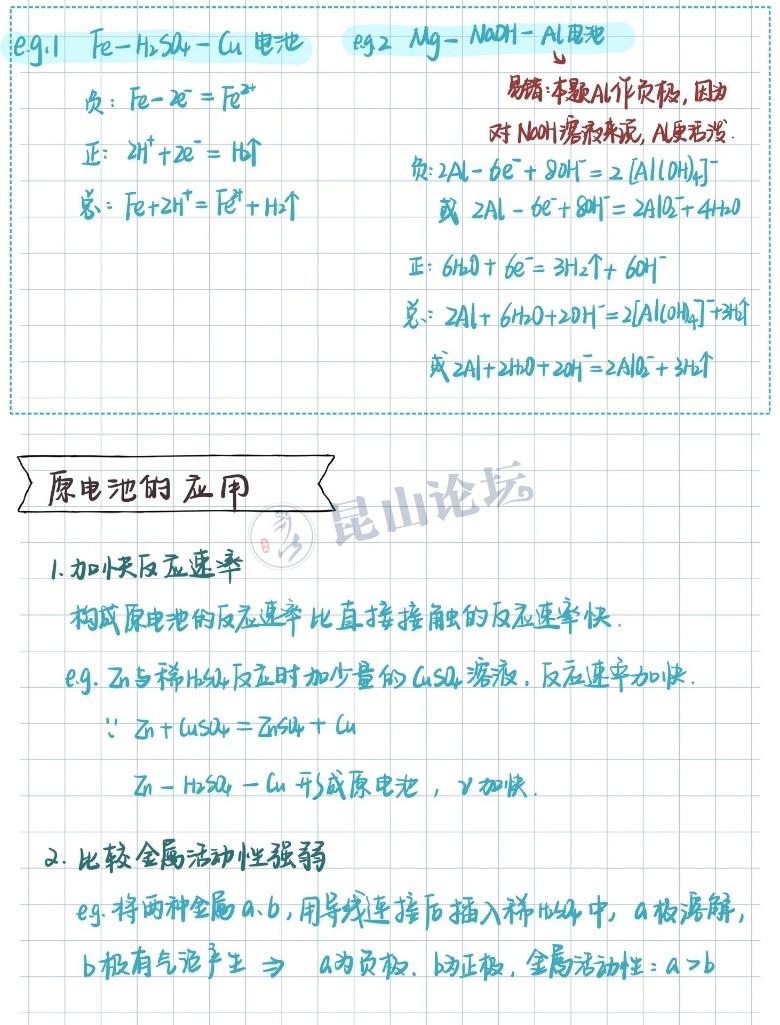 e.g.1 Fe-H₂SO₄-Cu 电池
负: Fe-2e⁻=Fe²⁺
正: 2H⁺+2e⁻=H₂↑
总: Fe+2H⁺=Fe²⁺+H₂↑
e.g.2 Mg-NaOH-Al电池
↓
易错:本题Al作负极,因为
对NaOH溶液来说,Al更活泼.
负: 2Al-6e⁻+8OH⁻=2[Al(OH)₄]⁻
或 2Al-6e⁻+8OH⁻=2AlO₂⁻+4H₂O
正: 6H₂O+6e⁻=3H₂↑+6OH⁻
总: 2Al+6H₂O+2OH⁻=2[Al(OH)₄]⁻+3H₂↑
或 2Al+2H₂O+2OH⁻=2AlO₂⁻+3H₂↑
原电池的应用
昆山论坛
1.加快反应速率
构成原电池的反应速率比直接接触的反应速率快.
e.g. Zn与稀H₂SO₄反应时加少量的CuSO₄溶液,反应速率加快.
∵ Zn+CuSO₄=ZnSO₄+Cu
Zn-H₂SO₄-Cu 形成原电池, v加快.
2.比较金属活动性强弱
eg.将两种金属a、b,用导线连接后插入稀H₂SO₄中, a极溶解,
b极有气泡产生 ⇒ a为负极. b为正极. 金属活动性: a>b